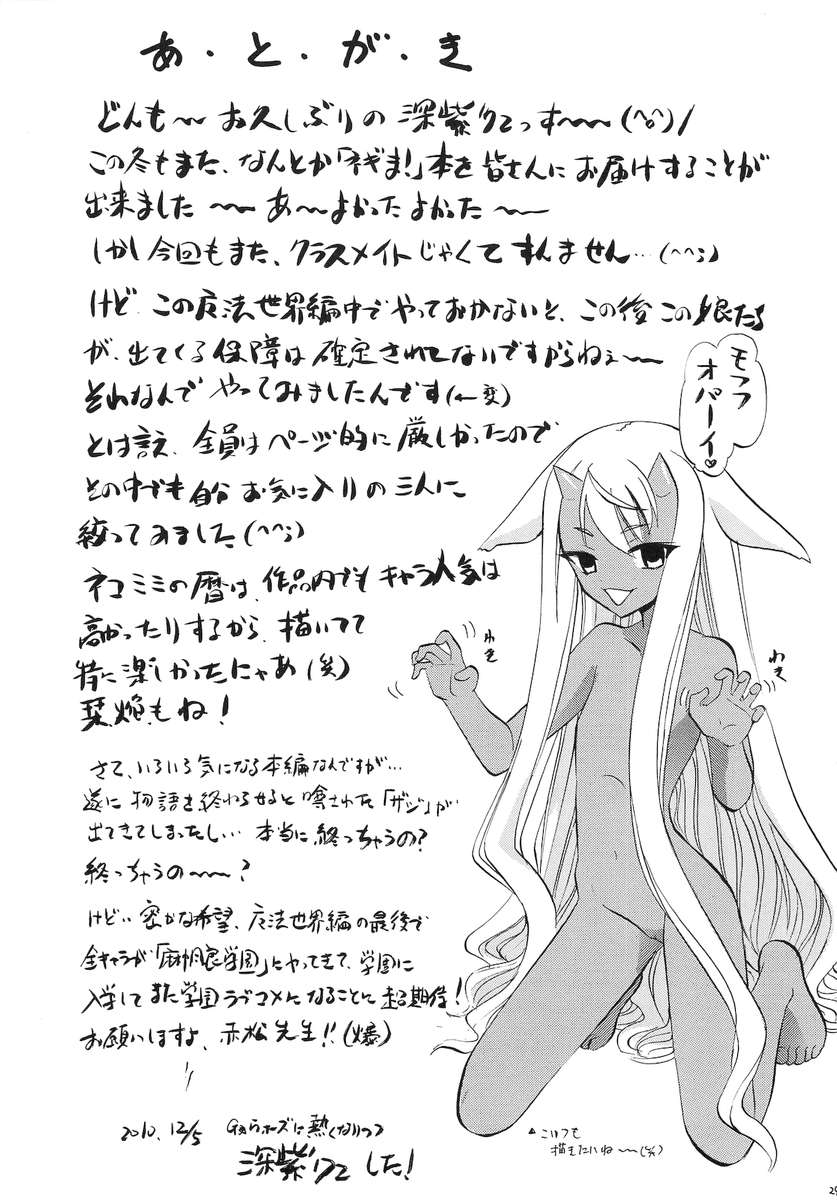 あ・と・が・き
どんも〜〜お久しぶりの 深紫クっす〜〜(^o^)/
この冬もまた、なんとか「ネギま!」本を皆さんにお届けすることが
出来ました〜〜あ〜よかったよかった〜〜
しかし今回もまた、クラスメイトじゃくてすんません…(^^;)
けど この魔法世界編中でやっておかないと、この後この娘たち
が、出てくる保障は確定されてないですからねぇ〜〜
それなんで やってみましたんです(←変)
とは言え、全員はページ的に厳しかったので
その中でも自分お気に入りの三人に
絞ってみました(^^;)
ネコミミの暦は、作品内でもキャラ人気は
高かったりするから、描いてて
特に楽しかったにゃあ(笑)
栞、焔もね!
モフフ
オパーイ♡
わき
わき
さて、いろいろ気になる本編なんですが…
遂に物語を終わらせると噂された「ザジ」が
出てきてしまったし… 本当に終っちゃうの?
終っちゃうの〜〜?
けど… 密かな希望、魔法世界編の最後で
全キャラが「麻帆良学園」にやってきて、学園に
入学してまた学園ラブコメになることに超期待!
お願いしますよ、赤松先生!!(爆)
2010. 12/5
に熱くなりつつ
深紫 した!
▲こいつも
描きたいね〜〜